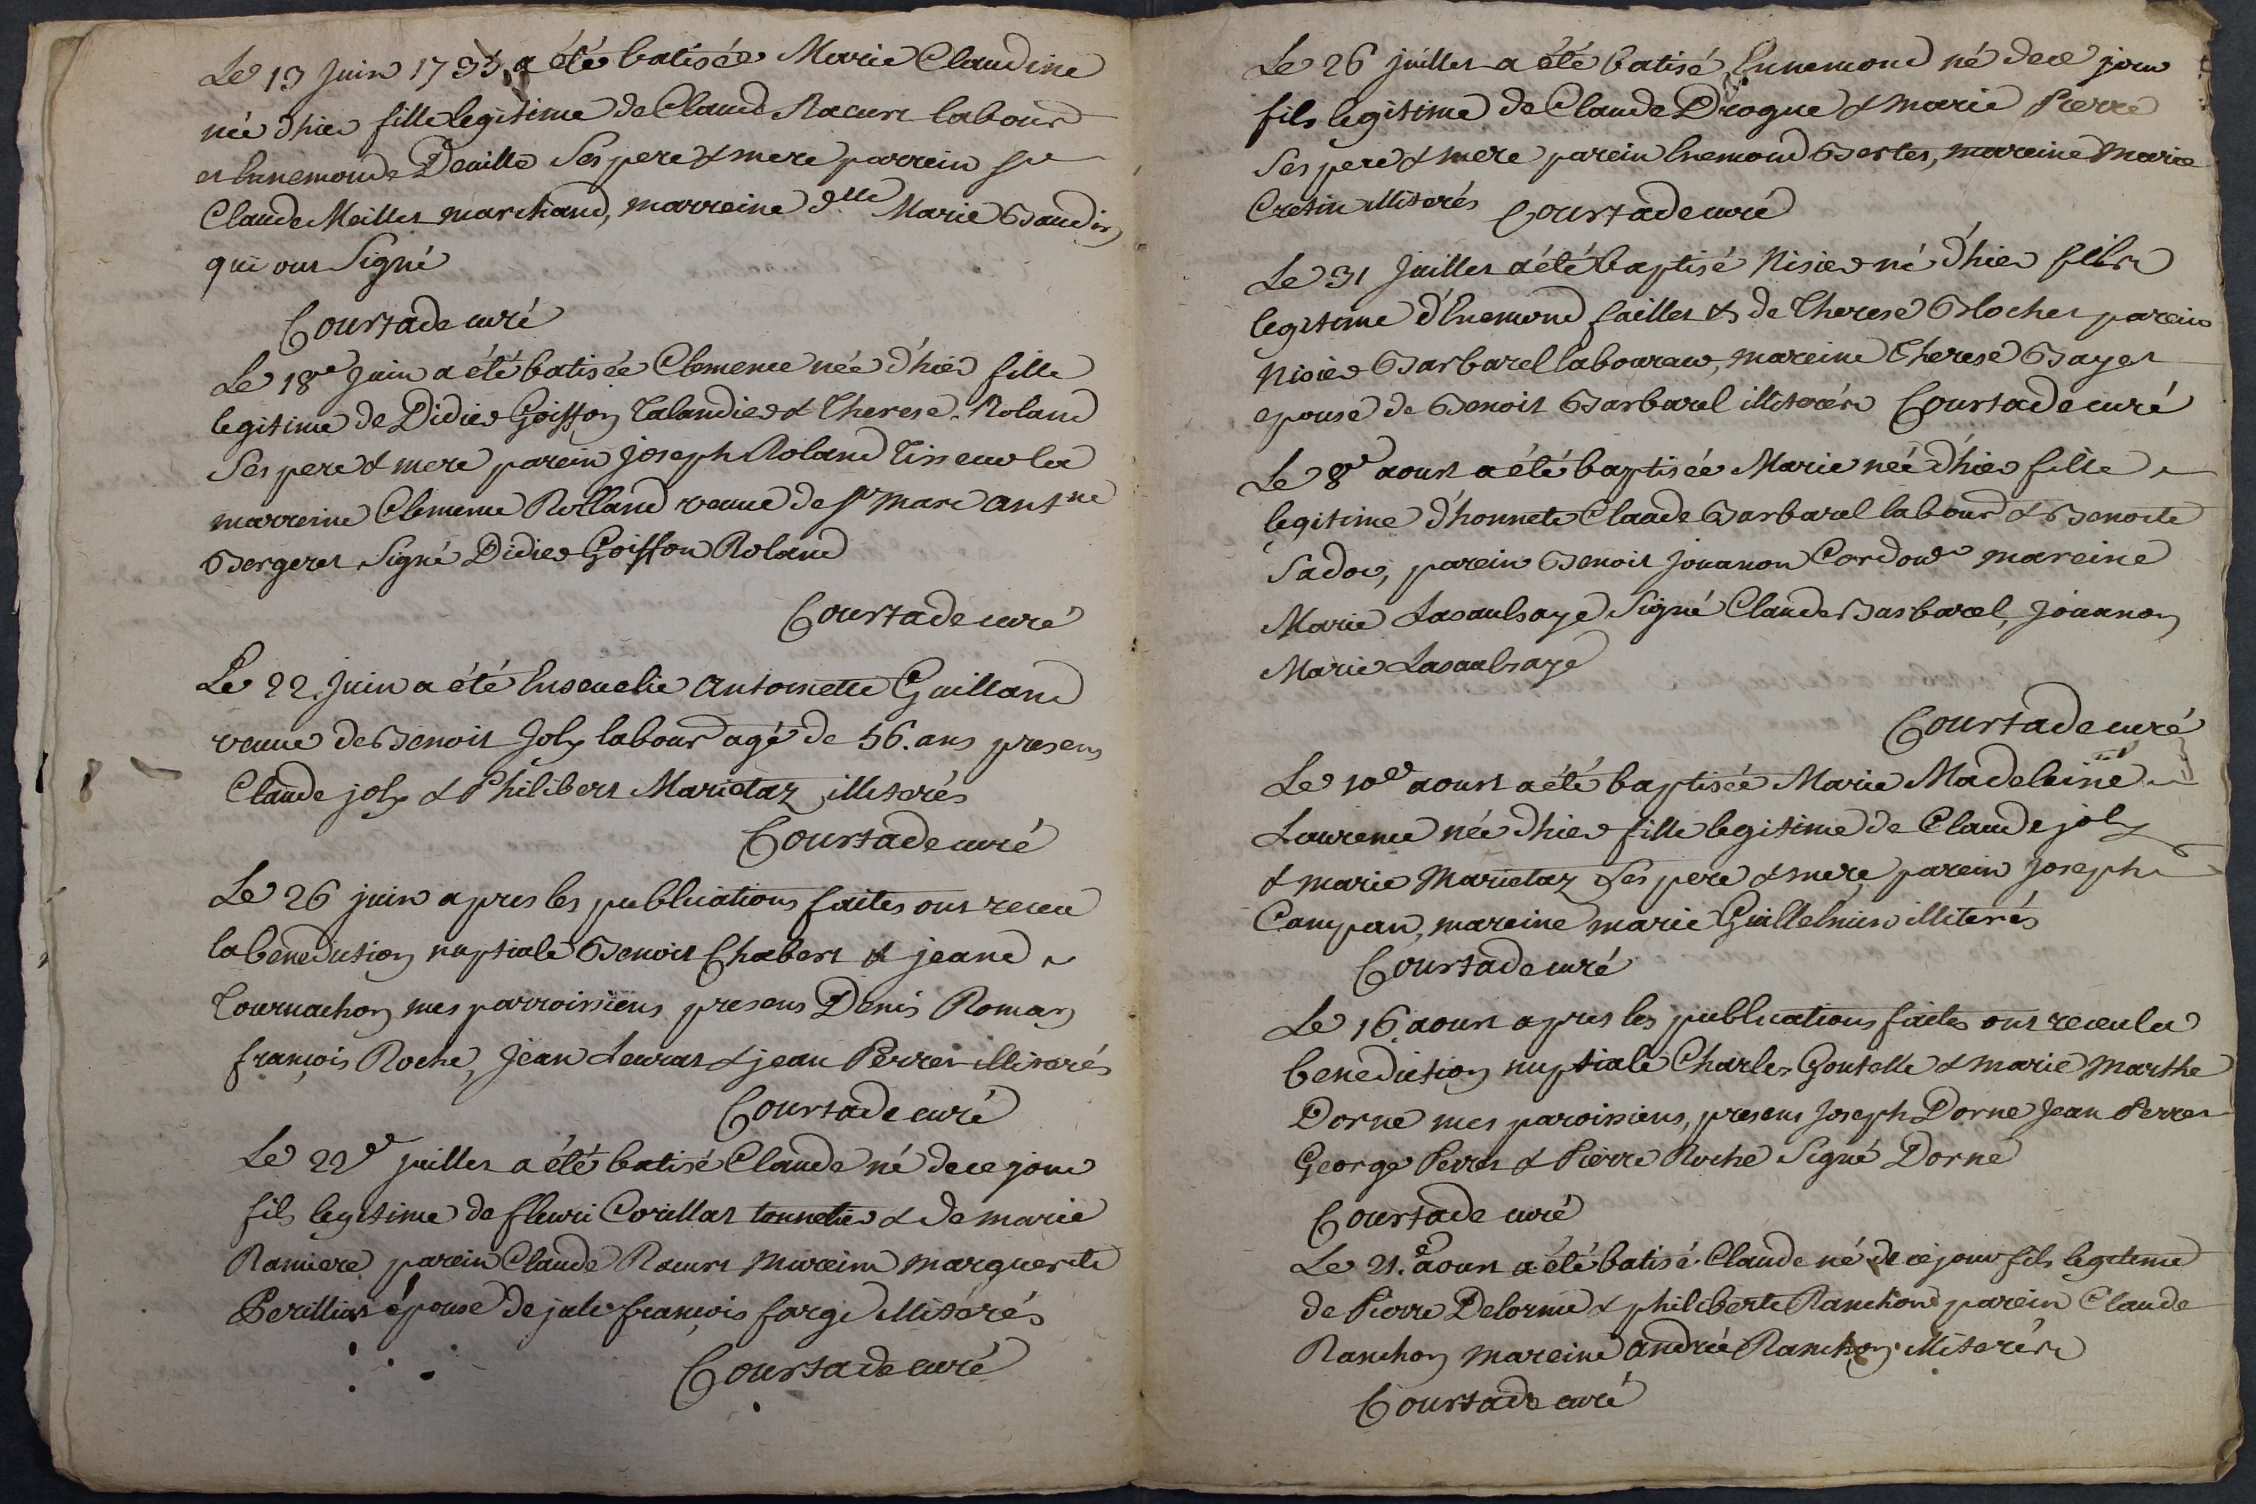 Le 13 Juin 1733 a été batisée Marie Claudine
née d'hier fille legitime de Claude Racurt labour
et Ennemonde Deville Ses pere & mere parrein Sr
Claude Meillet marchand, marreine dlle Marie Baudin
qui ont Signé
Courtade curé
Le 18e Juin a été batisée Clemence née d'hier fille
legitime de Didier Goiffon Talandier & Therese Roland
Ses pere & mere parein Joseph Roland Tisseur la
marreine Clemence Rolland veuve de Sr Marc Antne
Bergeret Signé Didier Goiffon Roland
Courtade curé
Le 22 Juin a été Ensevelie Antoinette Guilland
veuve de Benoit Joly labour agé de 56. ans presens
Claude joly & Philibert Marietaz illiterés
Courtade curé
Le 26 juin apres les publications faites ont receu
la benediction nuptiale Benoit Chabert & jeane
Tournachon mes parroissiens presens Denis Roman
françois Roche, Jean Leurat & jean Perret illiterés
Courtade curé
Le 22e juillet a été batisé Claude né de ce jour
fils legitime de fleuri Corillat tonnelier & de marie
Ramiere parein Claude Racurt mareine marguerite
Perilliat épouse de jule françois farge illiterés
Courtade curé
Le 26 juillet a été batisé Ennemond né de ce jour
fils legitime de Claude Drogue & marie Pierre
Ses pere & mere parein Enemond Bertet, mareine Marie
Cretin illiterés Courtade curé
Le 31 Juillet a été baptisé Nisier né d'hier fils
legitime d'Enemond faillet & de Therese Blochet parein
Nisier Barbarel laboureur, mareine Therese Bayet
epouse de Benoit Barbarel illiterés Courtade curé
Le 8e aoust a été baptisée Marie née d'hier fille
legitime d'honnete Claude Barbarel labour & Benoite
Sadoc, parein Benoit Jouanon Cordonr mareine
Marie Lasaulsaye Signé Claude Barbarel, Jouanon
Marie Lasaulsaye
Courtade curé
Le 10e aoust a été baptisée Marie Madeleine
Laurence née d'hier fille legitime de Claude joly
& marie Marietaz Ses pere & mere parein Joseph
Campan, mareine marie Guillelmin illiterés
Courtade curé
Le 16 aoust apres les publications faites ont receu la
benediction nuptiale Charles Goutelle & marie Marthe
Dorne mes paroissiens, presens Joseph Dorne Jean Perret
George Perret & Pierre Roche Signé Dorne
Courtade curé
Le 21.e aoust a été batisé Claude né de ce jour fils legitime
de Pierre Delorme & philiberte Ranchon parein Claude
Ranchon mareine andrée Ranchon illiterés
Courtade curé